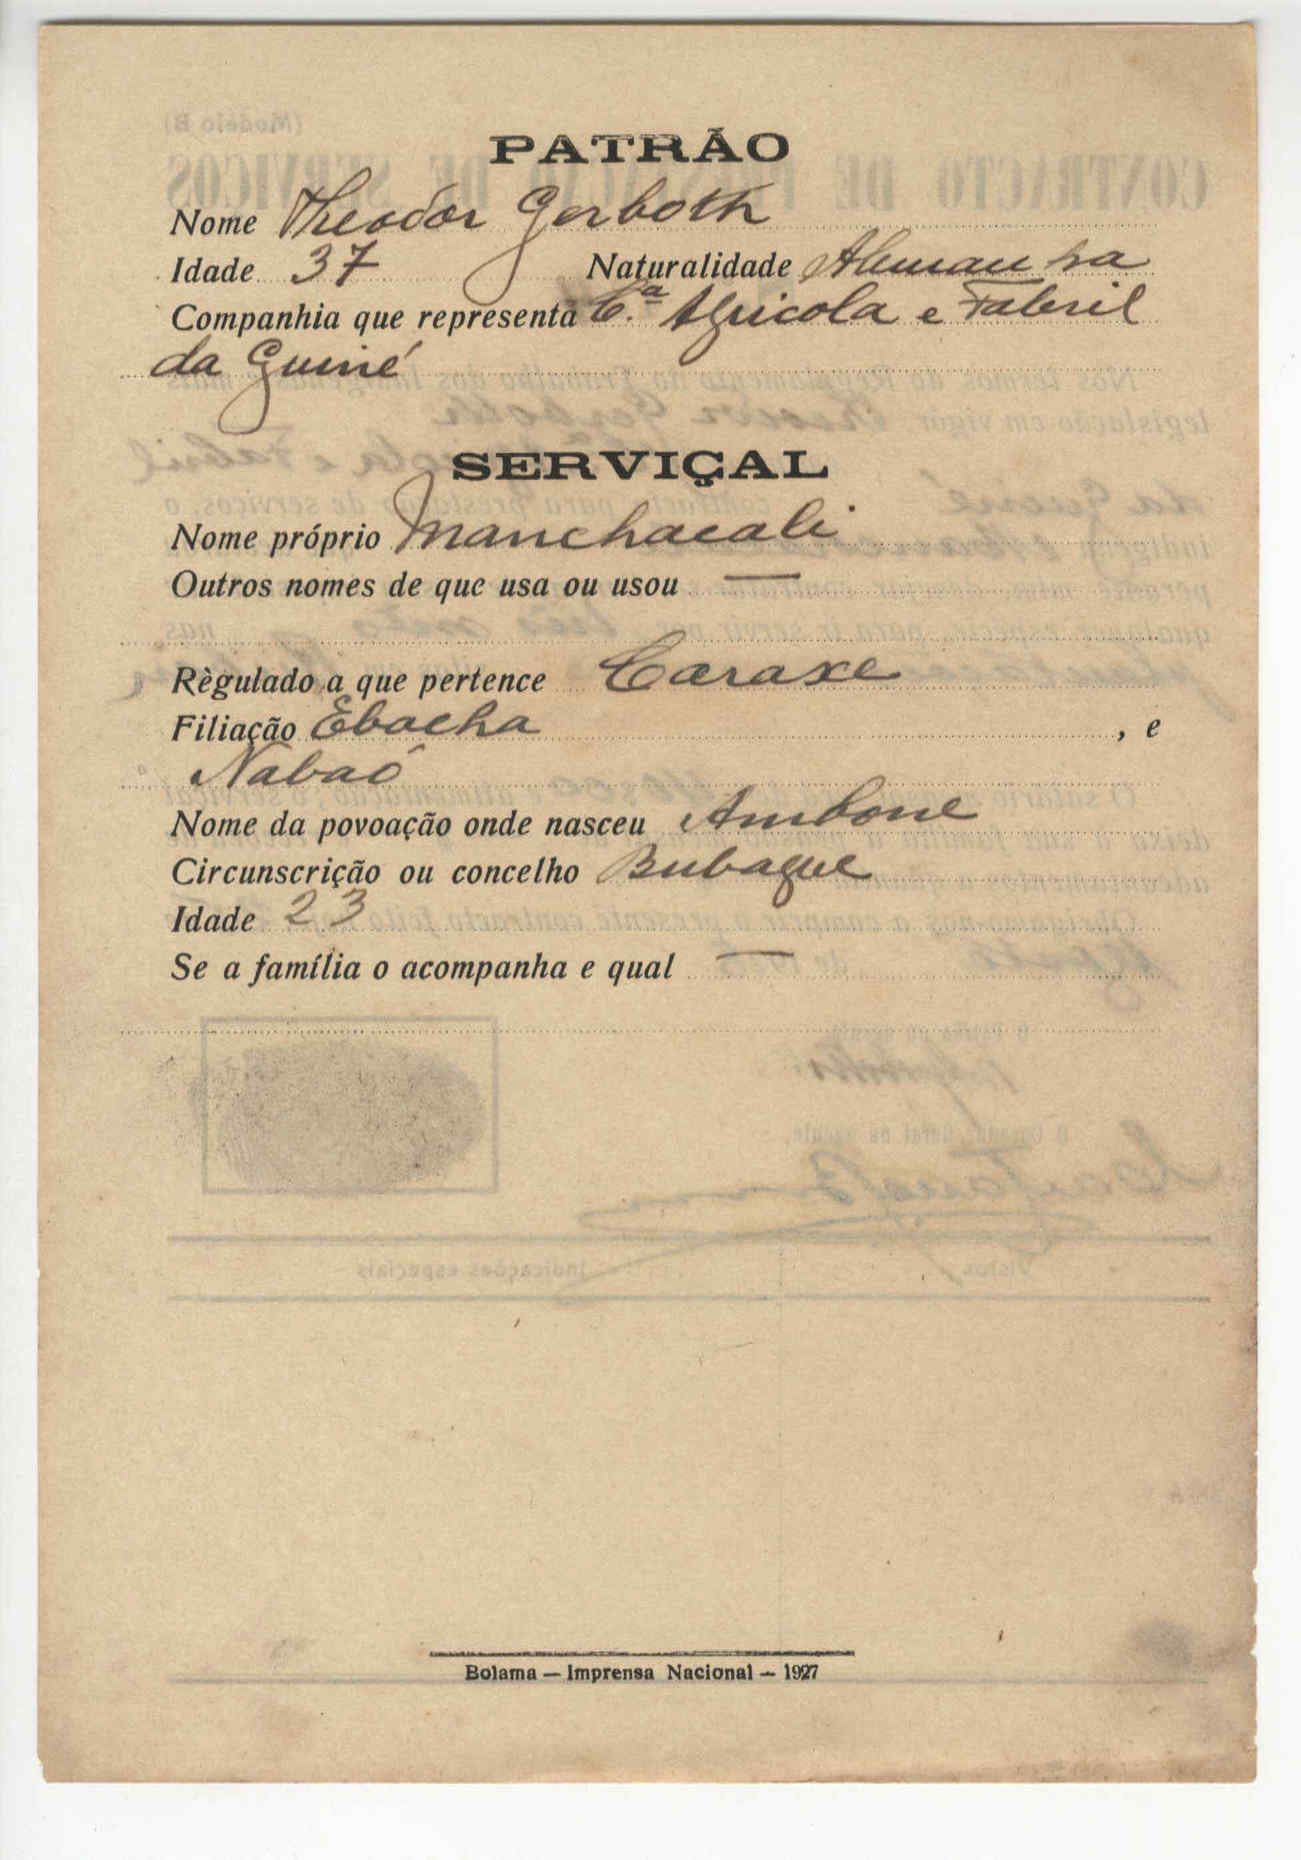 PATRÃO
Nome Theodor Gerboth
Idade 37 Naturalidade Alemanha
Companhia que representa C.ª Agricola e Fabril
da Guiné
SERVIÇAL
Nome próprio Manchacali
Outros nomes de que usa ou usou —
Règulado a que pertence Caraxe
Filiação Ebocha, e
Nabaó
Nome da povoação onde nasceu Ambone
Circunscrição ou concelho Bubaque
Idade 23
Se a família o acompanha e qual —
Bolama — Imprensa Nacional — 1927